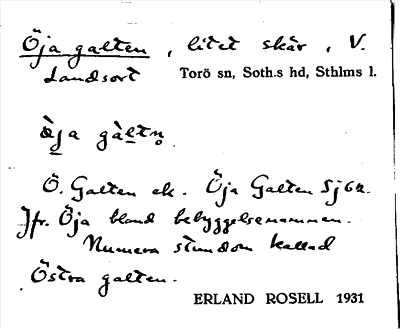 Öja galten, litet skär, V.
Landsort Torö sn, Soth.s hd, Sthlms l.
gàltn̥
Ö. Galten ek. Öja Galten Sjka.
Jfr. Öja bland bebyggelsenamnen.
Numera stundom kallad
Östra galten.
ERLAND ROSELL 1931